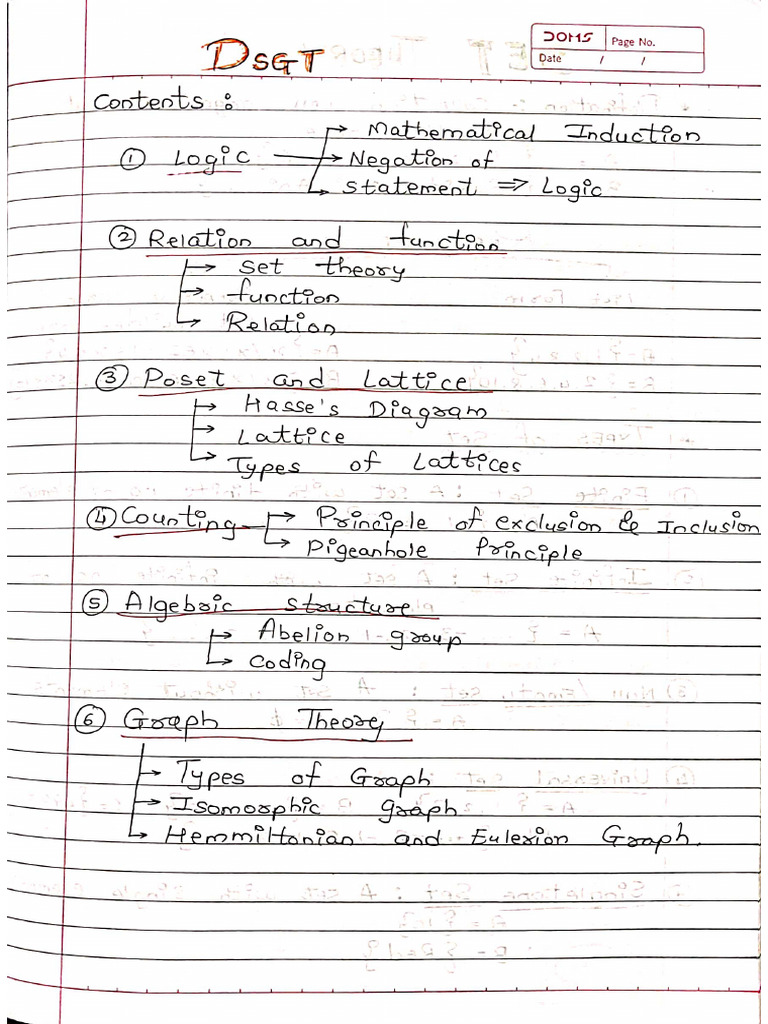 DSGT
DOMS Page No.
Date / /
Contents :
① Logic → Mathematical Induction
→ Negation of
statement ⇒ Logic
② Relation and function
→ set theory
→ function
→ Relation
③ Poset and Lattice
→ Hasse's Diagram
→ Lattice
→ Types of Lattices
④ Counting → Principle of exclusion & Inclusion
→ Pigeanhole Principle
⑤ Algebric structure
→ Abelion group
→ coding
⑥ Graph Theory
→ Types of Graph
→ Isomorphic graph
→ Hemmiltonian and Eulerion Graph.